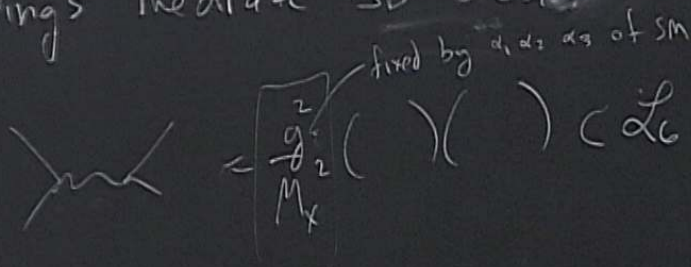 fixed by α₁ α₂ α₃ of SM
= g² / Mₓ² ( )( ) ⊂ ℒ₆